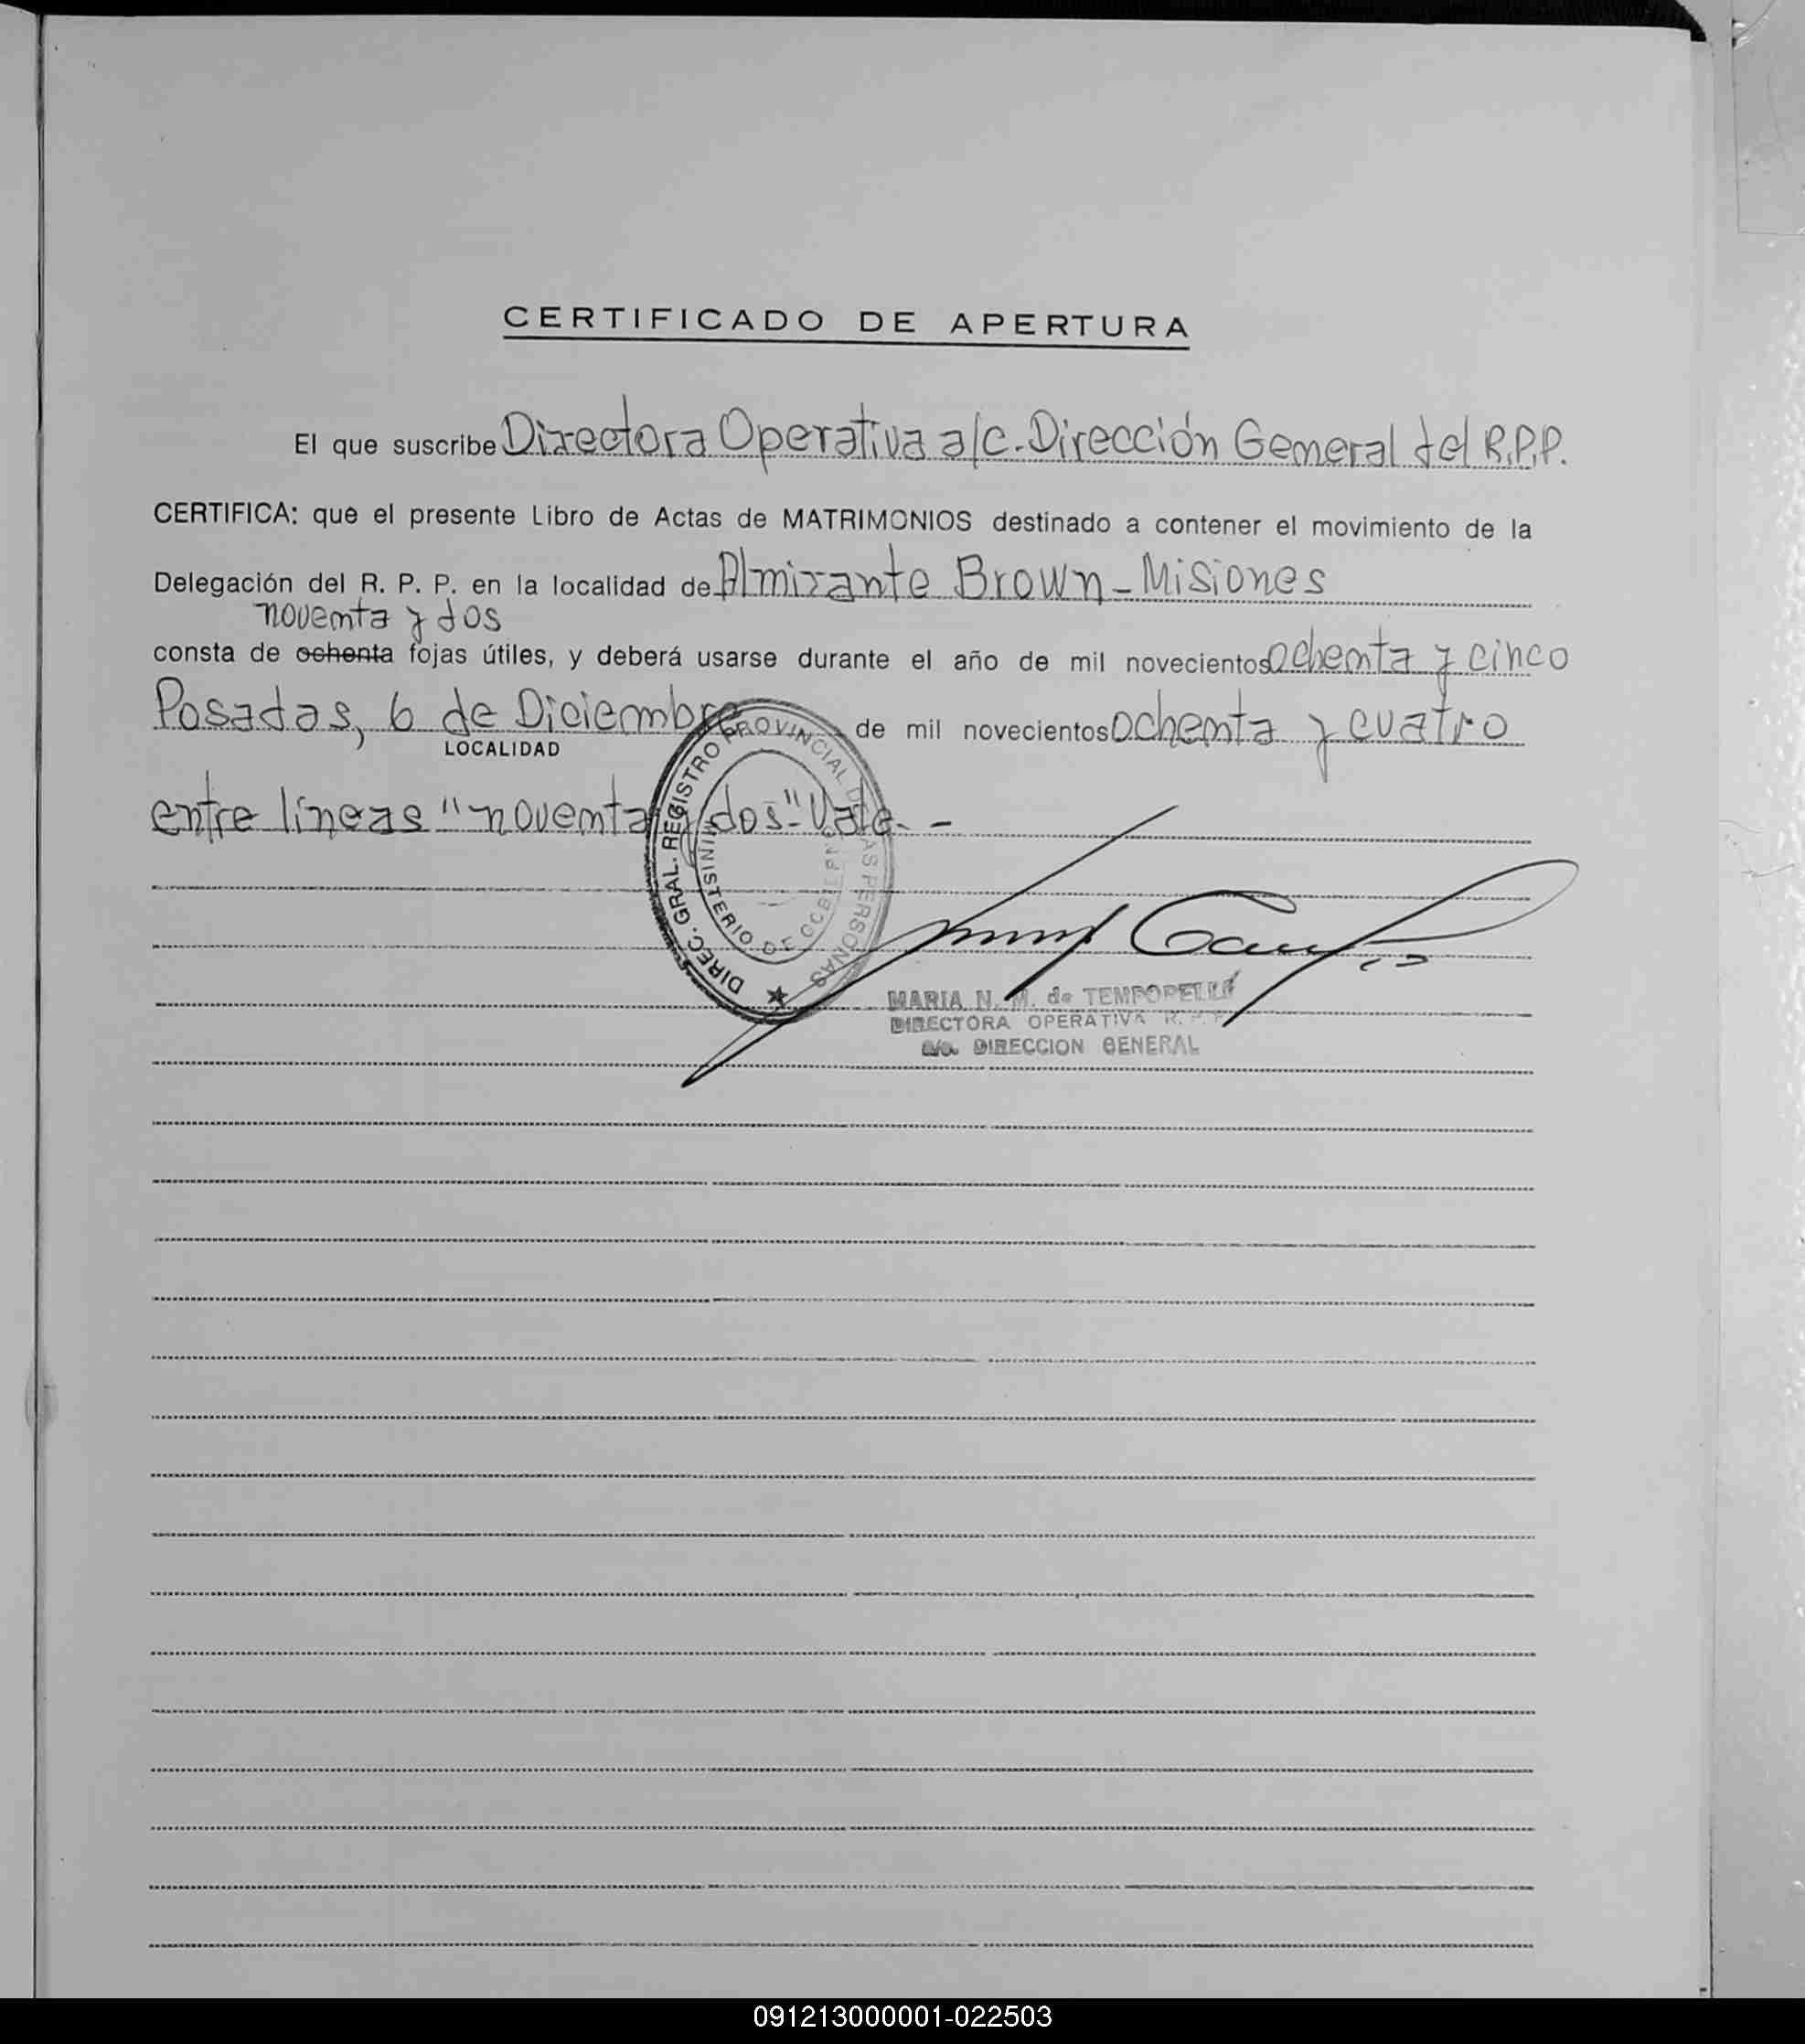 CERTIFICADO DE APERTURA
El que suscribe Directora Operativa a/c. Dirección General del R.P.P.
CERTIFICA: que el presente Libro de Actas de MATRIMONIOS destinado a contener el movimiento de la
Delegación del R. P. P. en la localidad de Almirante Brown - Misiones
noventa y dos
consta de ochenta fojas útiles, y deberá usarse durante el año de mil novecientos ochenta y cinco
Posadas, 6 de Diciembre de mil novecientos ochenta y cuatro
LOCALIDAD
entre líneas "noventa y dos" Vale. -
DIREC. GRAL. REGISTRO PROVINCIAL DE LAS PERSONAS
MINISTERIO DE GOBIERNO
MARIA N. M. de
DIRECTORA OPERATIVA R. P. P.
a/c. DIRECCION GENERAL
091213000001-022503